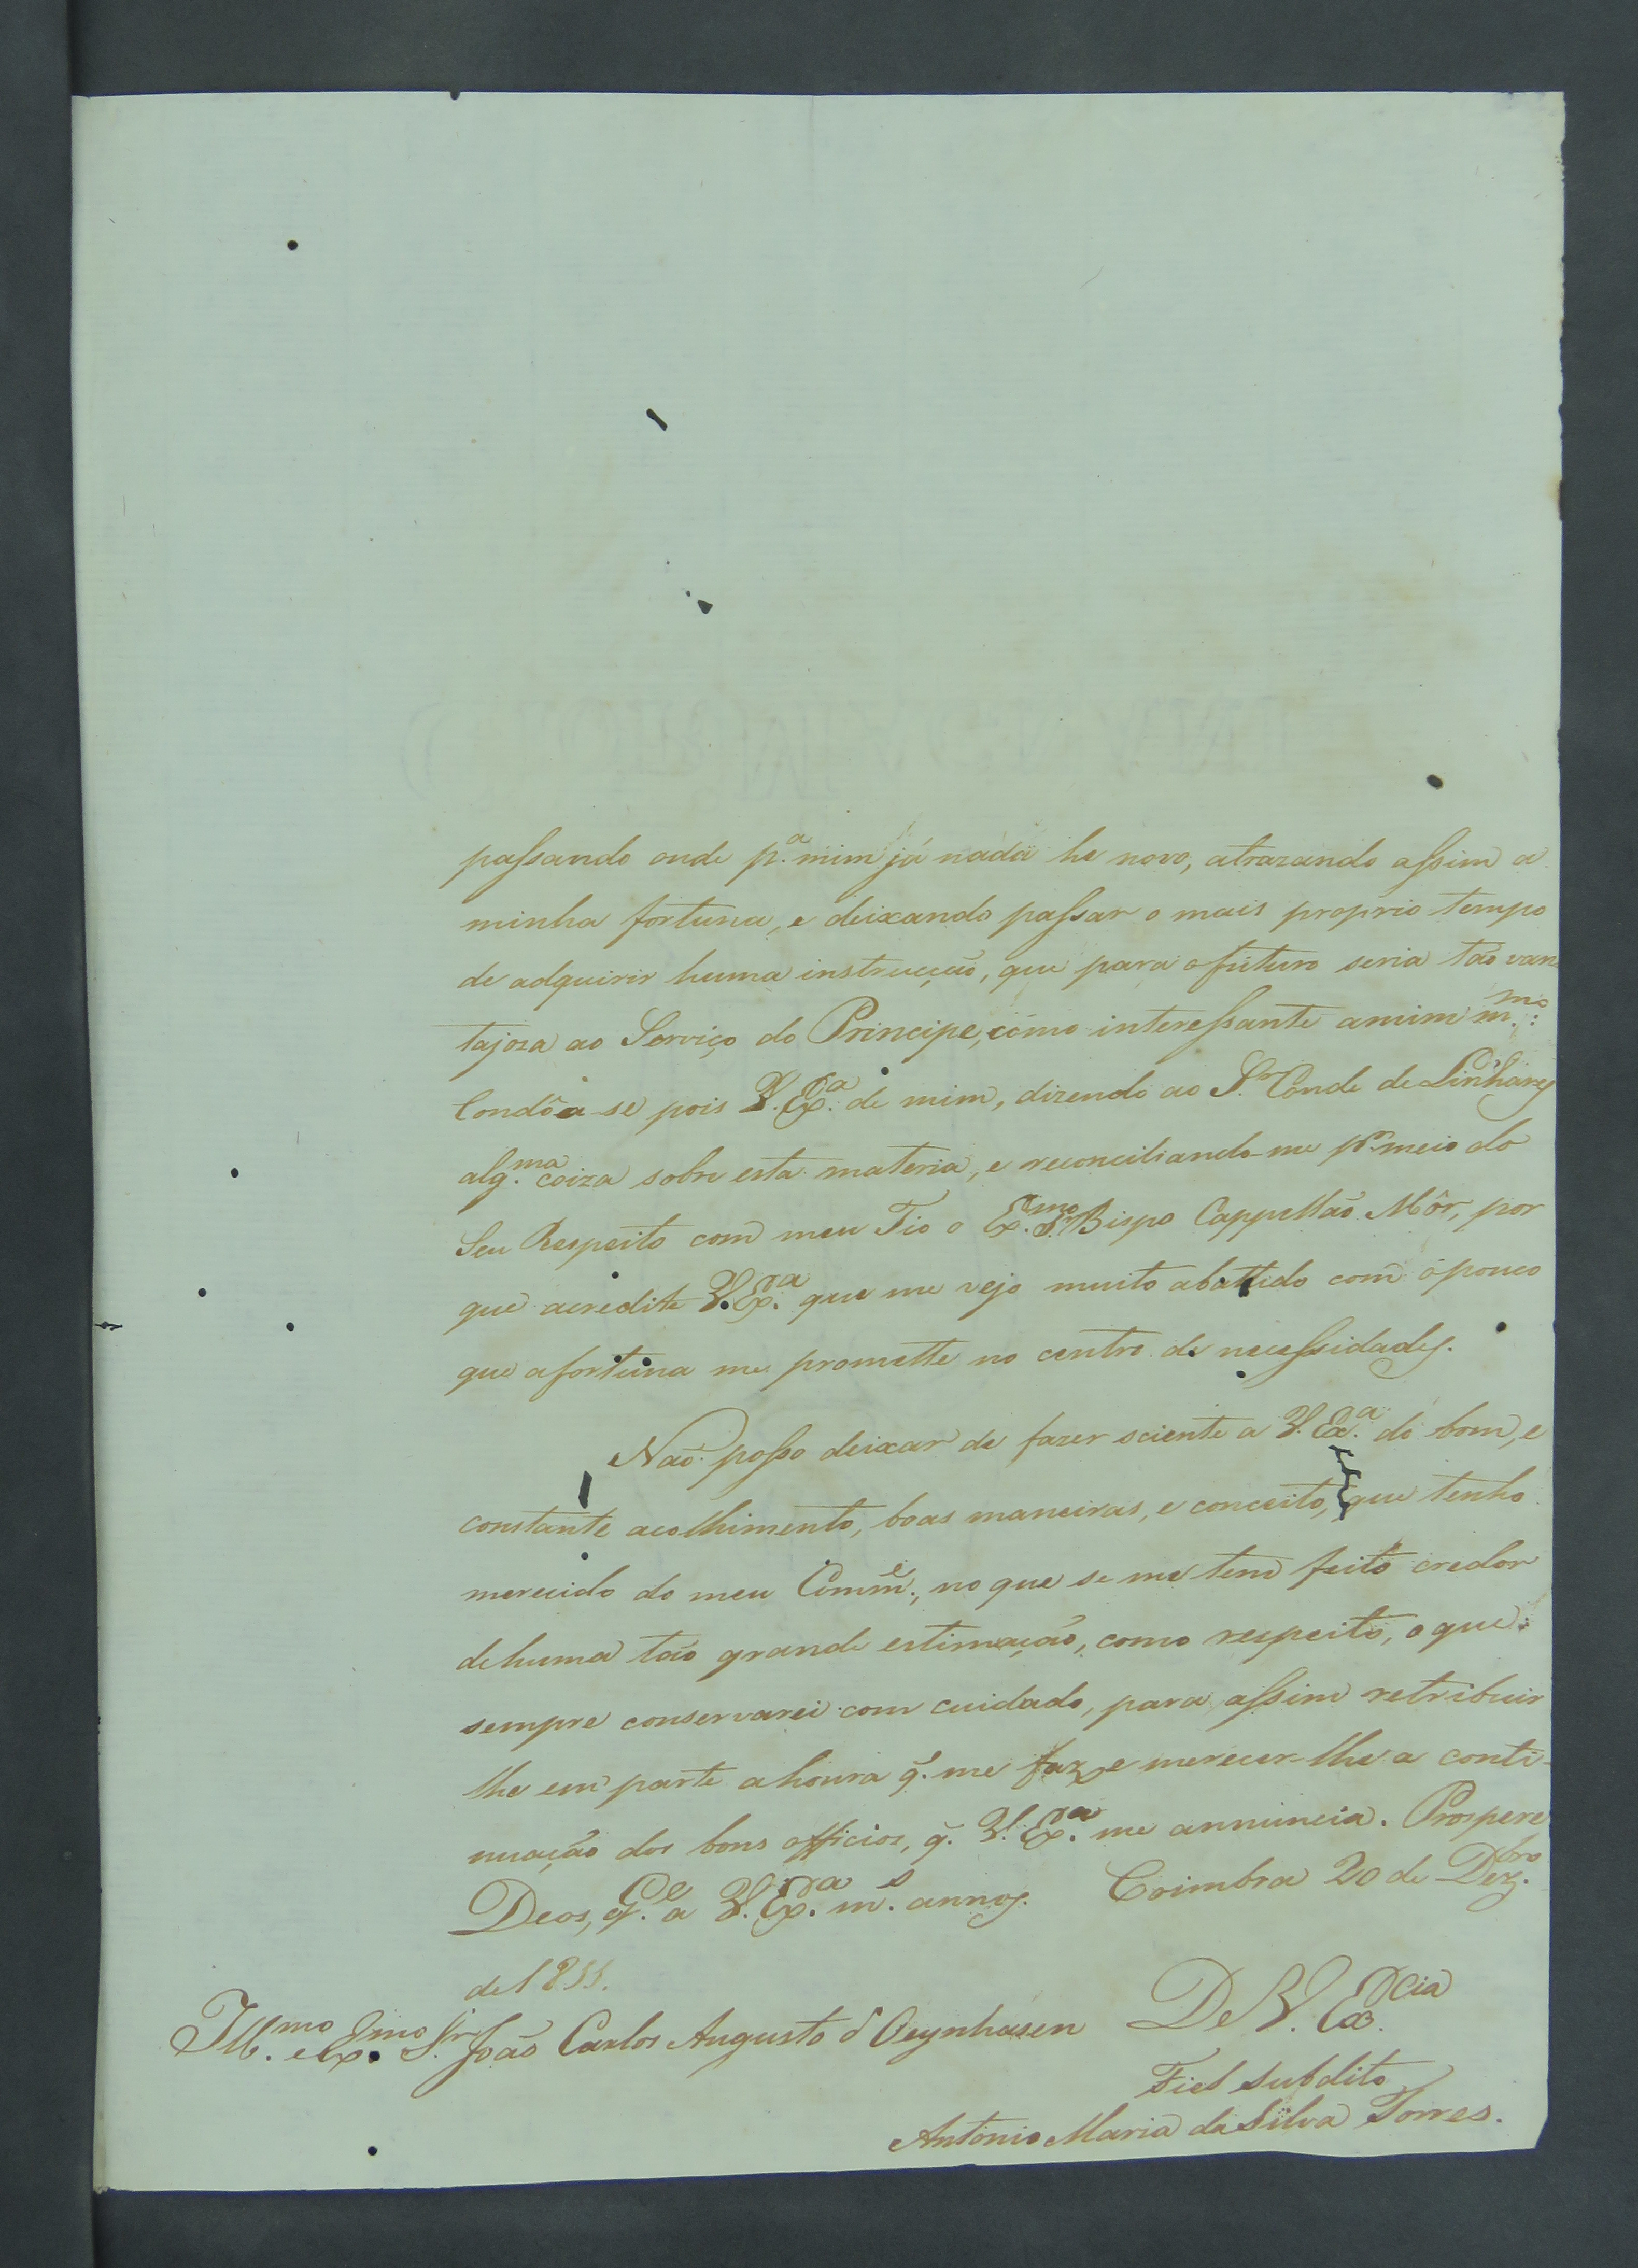 passando onde p.ª mim já nada he novo, atrazando assim a
minha fortuna, e deixando passar o mais proprio tempo
de adquirir huma instrucção, que para o futuro seria tão van
tajoza ao Serviço do Principe, como interessante amim m.mo:
Condôa-se pois V. Ex.ª de mim, dizendo ao S.r Conde de Linhares
alg.ma coiza sobre esta materia, e reconciliando-me p.r meio do
Seu Respeito com meu Tio o Ex.mo S.r Bispo Cappellão Môr, por
que acredite V. Ex.ª que me vejo muito abattido com o pouco
que a fortuna me promette no centro de necessidades.
Não posso deixar de fazer sciente a V. Ex.ª do bom, e
constante acolhimento, boas maneiras, e conceito, que tenho
merecido do meu Comm.e, no que se me tem feito credor
de huma tão grande estimação, como respeito, o que
sempre conservarei com cuidado, para assim retribuir
lhe em parte a honra q̃. me faz, e merecer-lhe a conti-
nuação dos bons officios, q̃. V. Ex.ª me annuncia. Prospere
Deos, e G.e a V. Ex.ª m.s annos. Coimbra 20 de Dez.bro
de 1811.
Ill.mo e Ex.mo S.r João Carlos Augusto d'Oeynhasen
De V. Ex.cia
Fiel Subdito
Antonio Maria da Silva Torres.